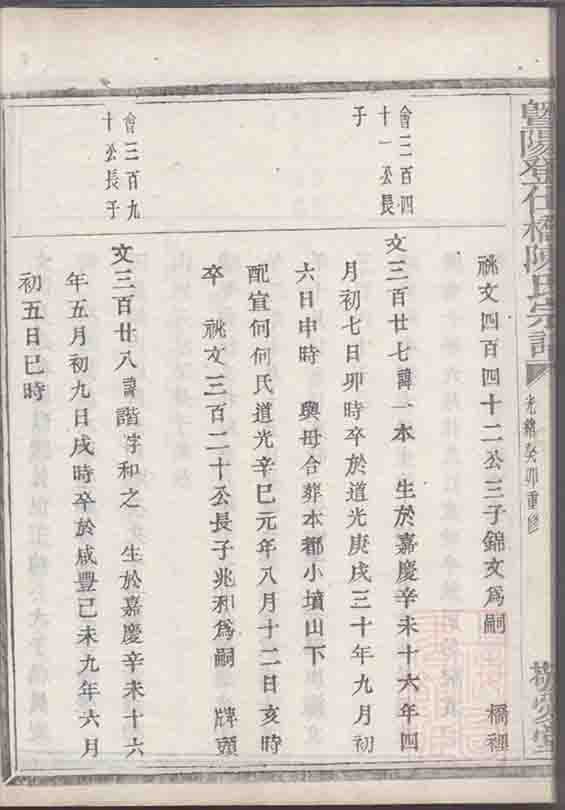 暨陽登仕橋陳氏宗譜
光緒癸卯重修
祧文四百四十二公三子錦文爲嗣 橋裡
會三百四
十一公長
子
文三百廿七諱一本 生於嘉慶辛未十六年四
月初七日卯時卒於道光庚戌三十年九月初
六日申時 與母合葬本都小墳山下
配宜何何氏道光辛巳元年八月十二日亥時
卒 祧文三百二十公長子兆和爲嗣 牌頭
會三百九
十公長子
文三百廿八諱諧字和之 生於嘉慶辛未十六
年五月初九日戌時卒於咸豐己未九年六月
初五日巳時